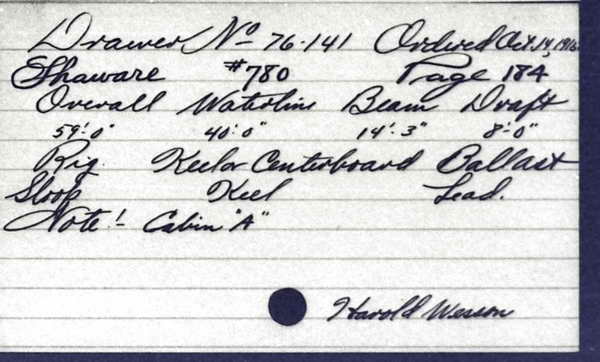 Drawer No 76-141 Ordered Oct. 14, 1916
Shaware #780 Page 184
Overall Waterline Beam Draft
59'-0" 40'-0" 14'-3" 8'-0"
Rig. Keel or Centerboard Ballast
Sloop Keel Lead.
Note!- Cabin "A"
Harold Wesson